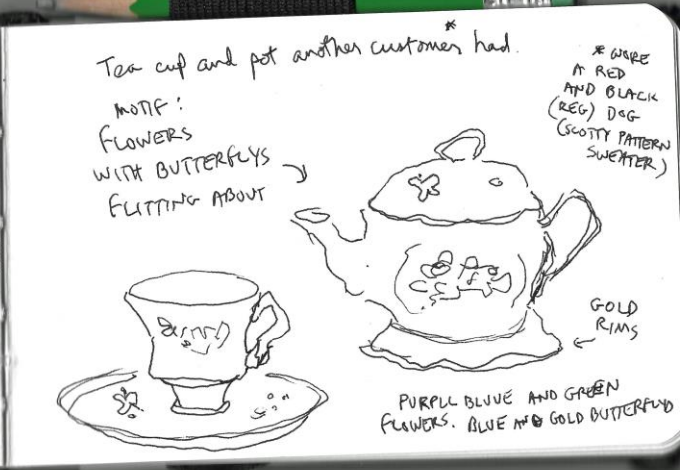 Tea cup and pot another customer* had.
* WORE
A RED
AND BLACK
(REG) DOG
(SCOTTY PATTERN
SWEATER)
MOTIF:
FLOWERS
WITH BUTTERFLYS
FLITTING ABOUT
GOLD
RIMS
PURPLE BLUUE AND GREEN
FLOWERS. BLUE AND GOLD BUTTERFLYD